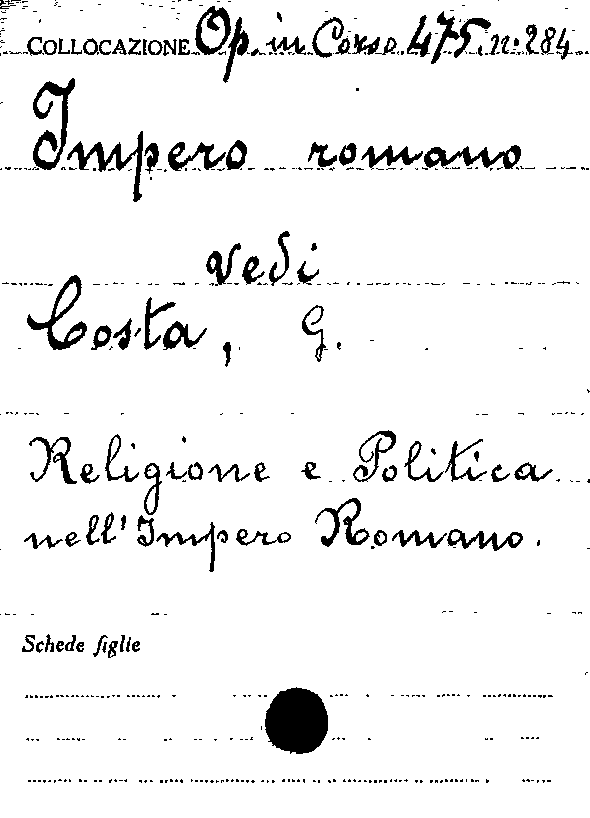 COLLOCAZIONE Op. in Corso 475. n. 284
Impero romano
vedi
Costa, G.
Religione e Politica
nell'Impero Romano.
Schede figlie